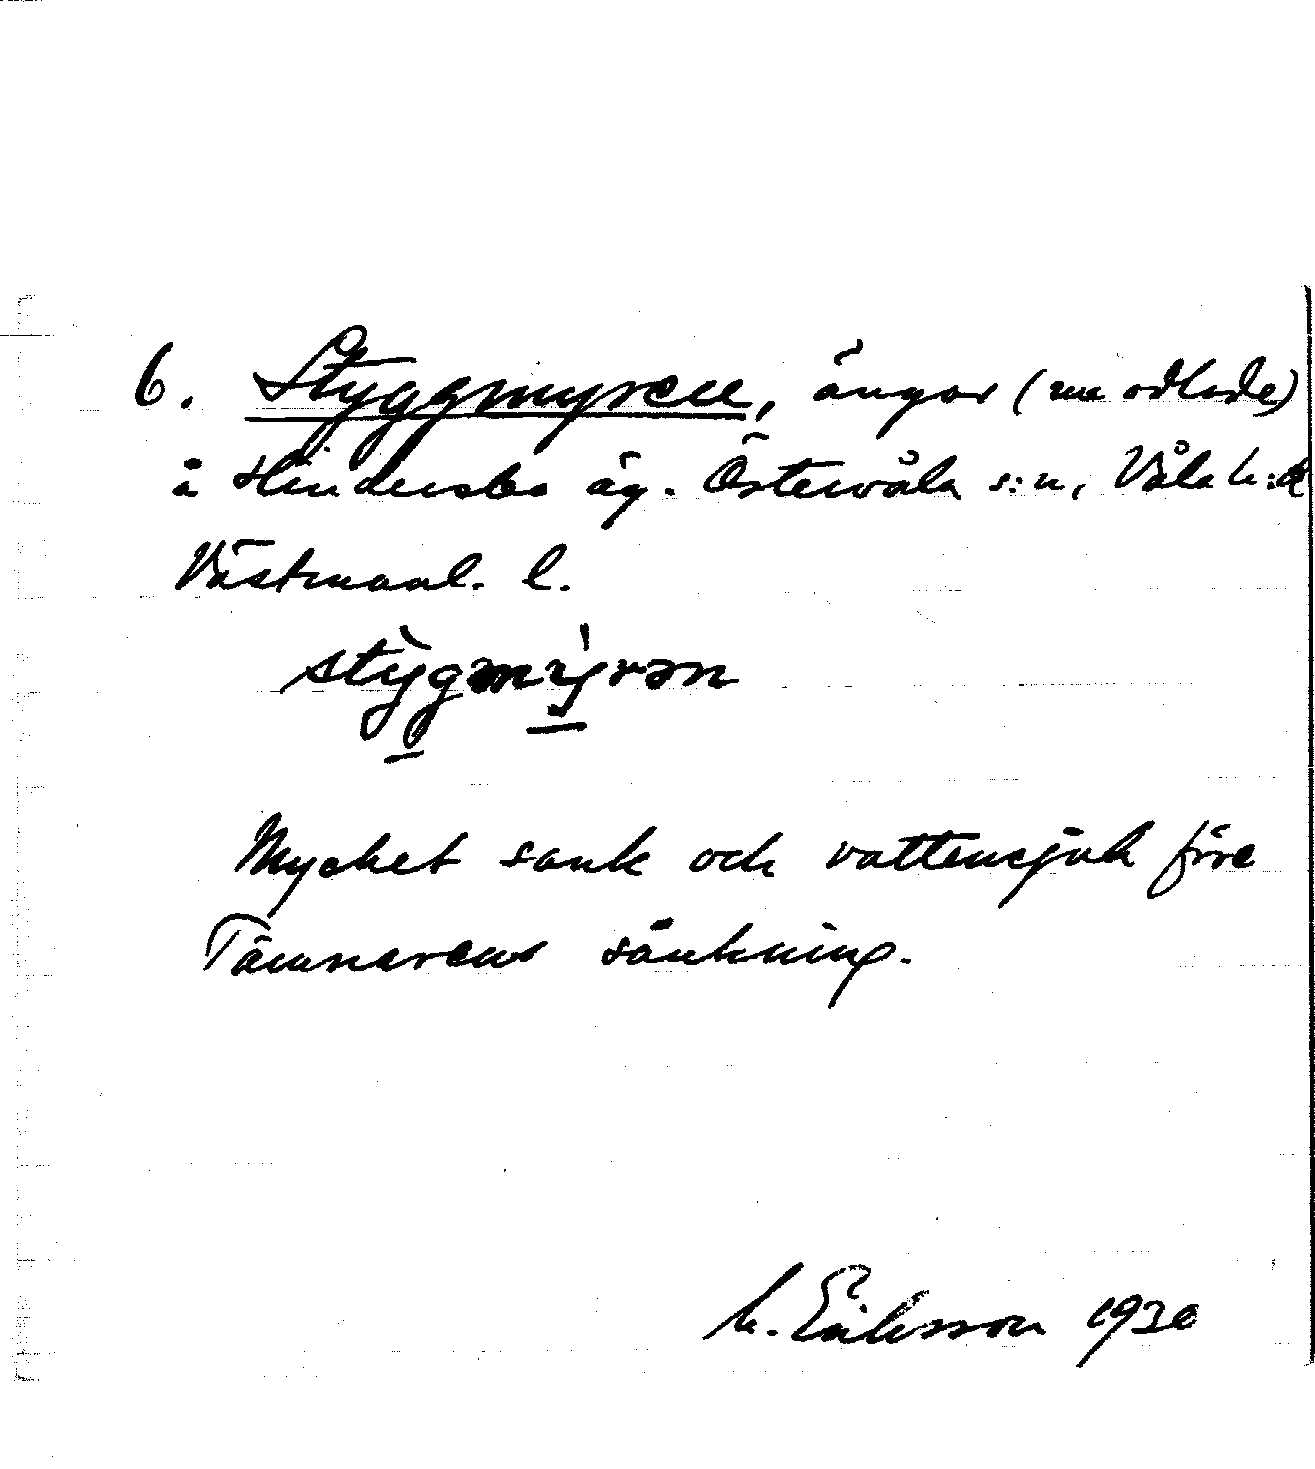 6. Styggmyren, ängar (nu odlade)
å Hindersbo äg. Östervåla s:n, Våla h:d
Västmanl. l.
stỳgmýrən
Mycket sank och vattensjuk före
Tämnarens sänkning.
M. Eriksson 1930